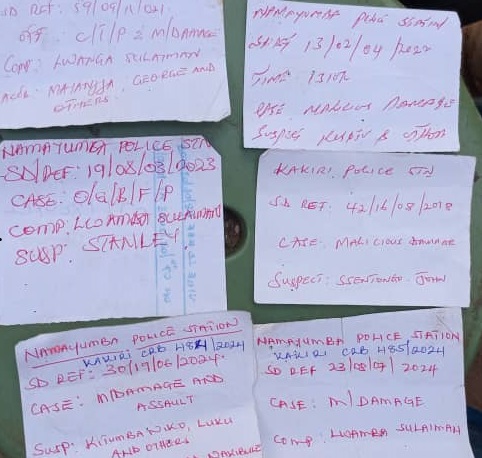 SD REF: 59/09/11/021.
OFF: C/T/P & M/DAMAGE
Comp: LWANGA SULAIMAN
Accd: MATANJJA GEORGE AND
OTHERS.
NAMAYUMBA POLICE STATION
SD REF 13/02/04/2022
TIME: 1310C
CASE MALICIOUS DAMAGE
SUSPECT & OTHERS
NAMAYUMBA POLICE STN
SD REF: 19/08/03/2023
CASE: O/G/B/F/P
COMP: LWAMBA SULAIMAN
SUSP: STANLEY
KAKIRI POLICE STN
SD REF: 42/16/08/2018
CASE: MALICIOUS DAMAGE
SUSPECT: SSENTONGO JOHN
NAMAYUMBA POLICE STATION
KAKIRI CRB 484/2024
SD REF: 30/19/06/2024.
CASE: M/DAMAGE AND
ASSAULT
SUSP: KITUMBA NIKO, LUKU
AND OTHERS
NAMAYUMBA POLICE STATION
KAKIRI CRB 485/2024
SD REF 23/08/07/2024
CASE: M/DAMAGE
Comp: LWAMBA SULAIMAN